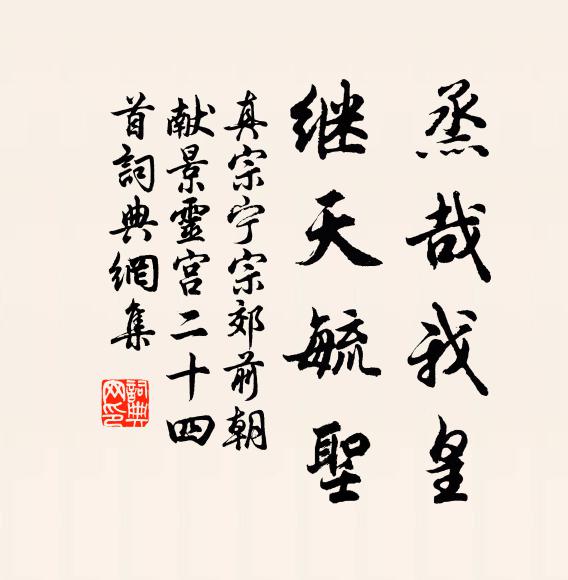 烝哉我皇
继天毓聖
真宗宁宗郊前朝
献景靈宫二十四
首詞典網集
詞典网印